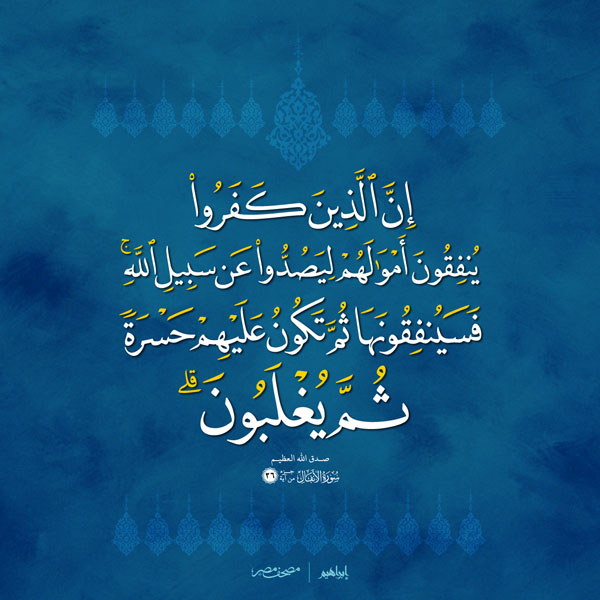 إِنَّ ٱلَّذِينَ كَفَرُوا۟
يُنفِقُونَ أَمْوَٰلَهُمْ لِيَصُدُّوا۟ عَن سَبِيلِ ٱللَّهِ ۚ
فَسَيُنفِقُونَهَا ثُمَّ تَكُونُ عَلَيْهِمْ حَسْرَةً
ثُمَّ يُغْلَبُونَ ۗ
صدق الله العظيم
سُورَةُ الأَنفَال جزء من آية ٣٦
إبراهيم | مصحف مصر